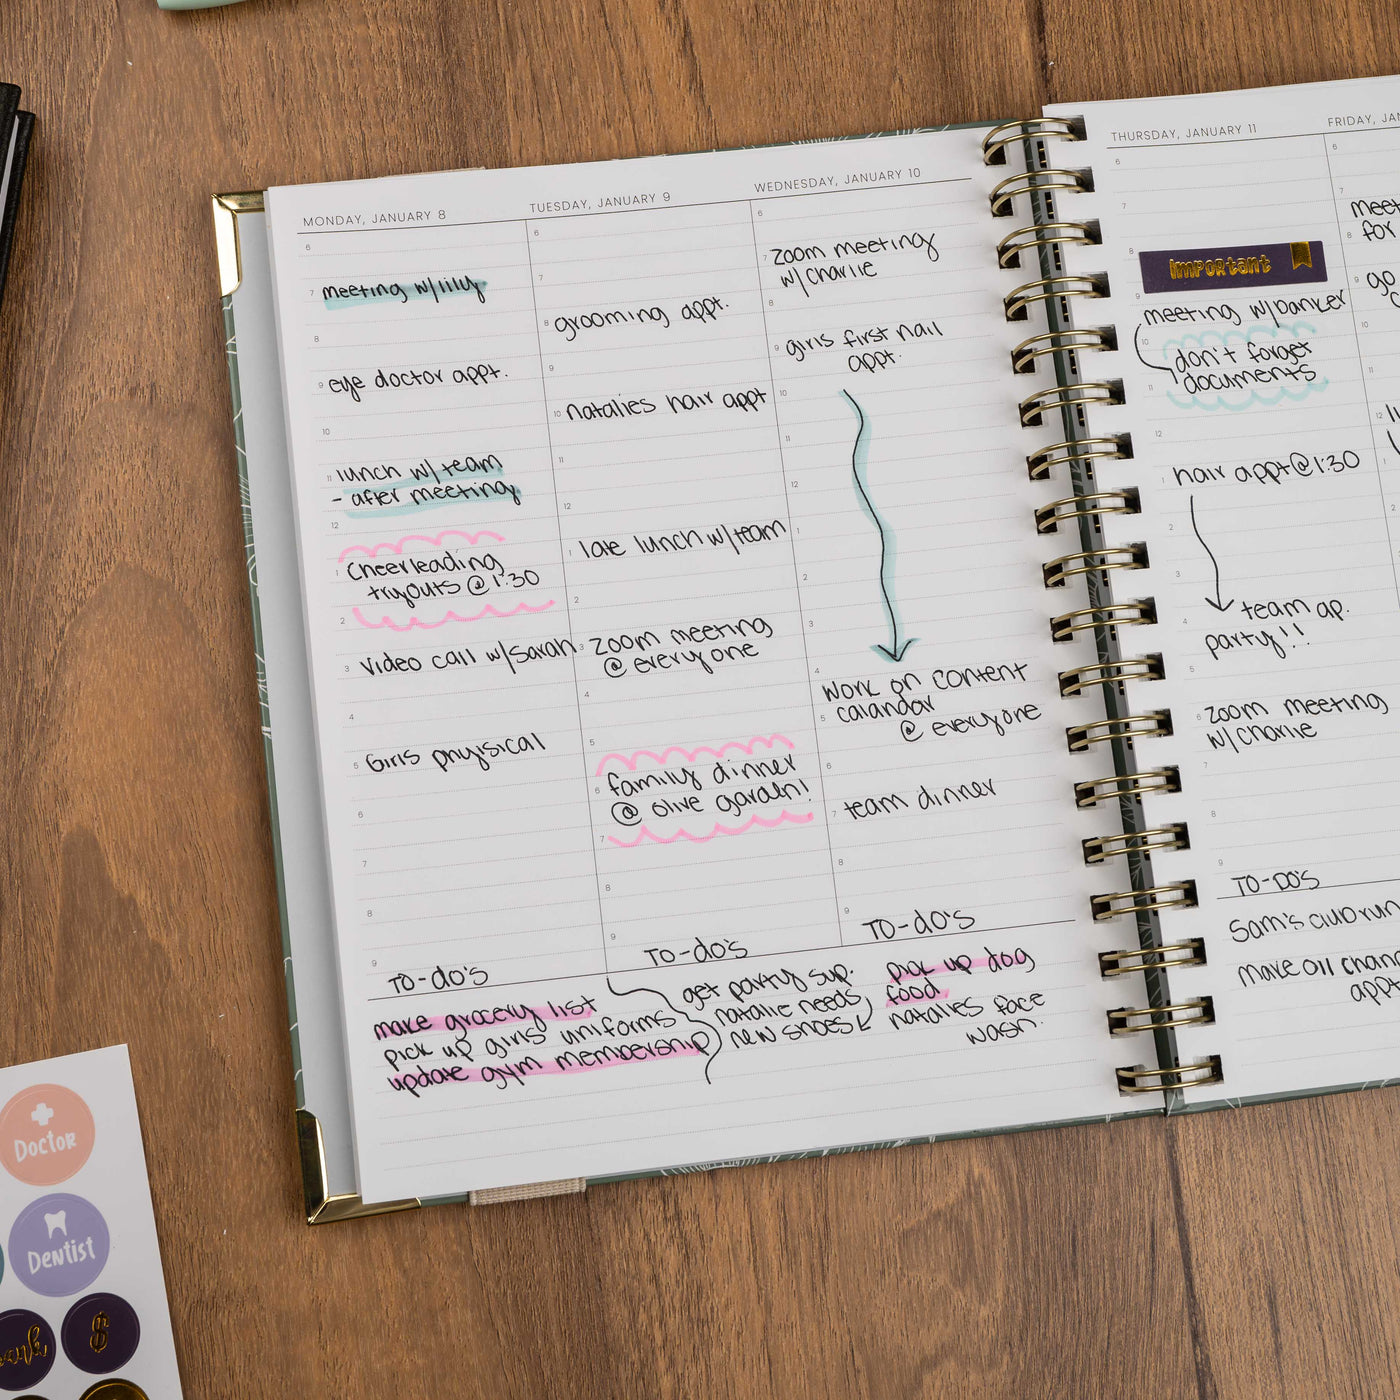 MONDAY, JANUARY 8
6
7 meeting w/lily
8
9 eye doctor appt.
10
11 lunch w/ team
- after meeting
12
1 Cheerleading
tryouts @ 1:30
2
3 video call w/Sarah
4
5 Girls phyisical
6
7
8
9
TO-do's
make grocery list
pick up girls uniforms
update gym membership
TUESDAY, JANUARY 9
6
7
8 grooming appt.
9
10 natalies hair appt
11
12
1 late lunch w/team
2
3 zoom meeting
@ everyone
4
5
6 family dinner
@ olive garden!
7
8
9
TO-do's
get party sup.
natalie needs
new shoes
WEDNESDAY, JANUARY 10
6
7 zoom meeting
w/ Charlie
8
9 girls first nail
appt.
10
11
12
1
2
3
4
work on content
5 calandar
@ everyone
6
7 team dinner
8
9
TO-do's
pick up dog
food
natalies face
wash.
THURSDAY, JANUARY 11
6
7
8
Important
9
meeting w/banker
10 don't forget
11 documents
12
1 hair appt@1:30
2
3
team ap.
4 party!!
5
6 zoom meeting
w/Charlie
7
8
9
TO-DO'S
Sam's club run
make oil
appt
FRIDAY,
6
8 for
9 go
10
12
1
2
Doctor
Dentist
$